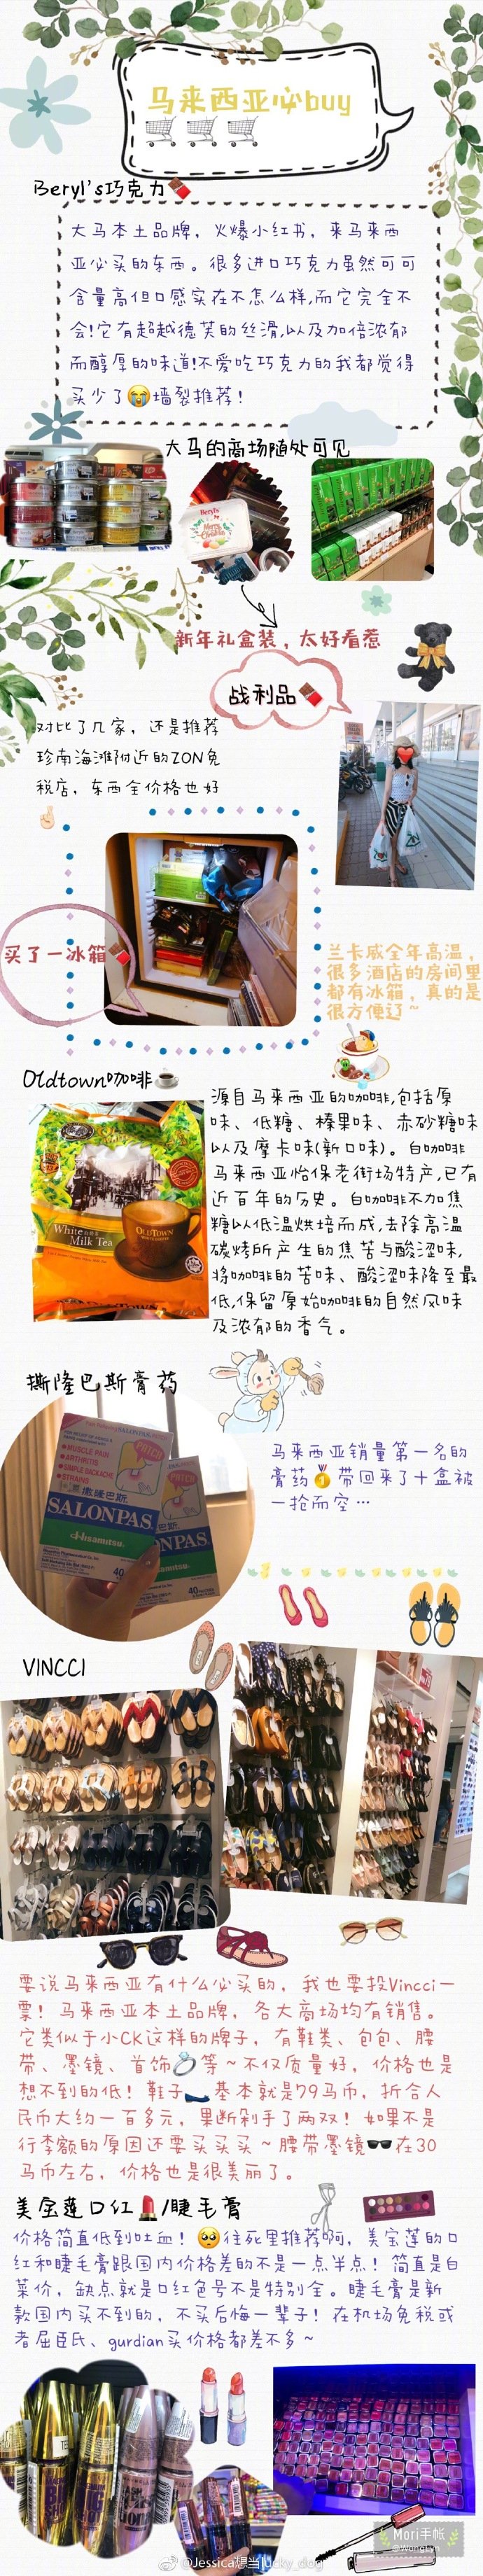 马来西亚必buy
Beryl's巧克力
大马本土品牌，火爆小红书，来马来西
亚必买的东西。很多进口巧克力虽然可可
含量高但口感实在不怎么样,而它完全不
会!它有超越德芙的丝滑,以及加倍浓郁
而醇厚的味道!不爱吃巧克力的我都觉得
买少了😭墙裂推荐!
大马的商场随处可见
Beryl's
新年礼盒装，太好看惹
战利品
对比了几家，还是推荐
珍南海滩附近的ZON免
税店，东西全价格也好
买了一冰箱
兰卡威全年高温，
很多酒店的房间里
都有冰箱，真的是
很方便辽~
Oldtown咖啡
源自马来西亚的咖啡,包括原
味、低糖、榛果味、赤砂糖味
以及摩卡味(新口味)。白咖啡
马来西亚怡保老街场特产,已有
近百年的历史。白咖啡不加焦
糖以低温烘培而成,去除高温
碳烤所产生的焦苦与酸涩味,
将咖啡的苦味、酸涩味降至最
低,保留原始咖啡的自然风味
及浓郁的香气。
White
Milk Tea
OLDTOWN
撕隆巴斯膏药
马来西亚销量第一名的
膏药🏅带回来了十盒被
一抢而空…
SALONPAS
PATCH
MUSCLE PAIN
ARTHRITIS
SIMPLE BACKACHE
STRAINS
撒隆巴斯
SALONPAS
Hisamitsu
40
NPAS
40
VINCCI
要说马来西亚有什么必买的，我也要投Vincci一
票！马来西亚本土品牌，各大商场均有销售。
它类似于小CK这样的牌子，有鞋类、包包、腰
带、墨镜、首饰💍等~不仅质量好，价格也是
想不到的低！鞋子🥿基本就是79马币，折合人
民币大约一百多元，果断剁手了两双！如果不是
行李额的原因还要买买买~腰带墨镜🕶在30
马币左右，价格也是很美丽了。
美宝莲口红💄/睫毛膏
价格简直低到吐血！🥺往死里推荐啊，美宝莲的口
红和睫毛膏跟国内价格差的不是一点半点！简直是白
菜价，缺点就是口红色号不是特别全。睫毛膏是新
款国内买不到的，不买后悔一辈子！在机场免税或
者屈臣氏、gurdian买价格都差不多~
Mori手帐
@Jessica想当lucky_dog